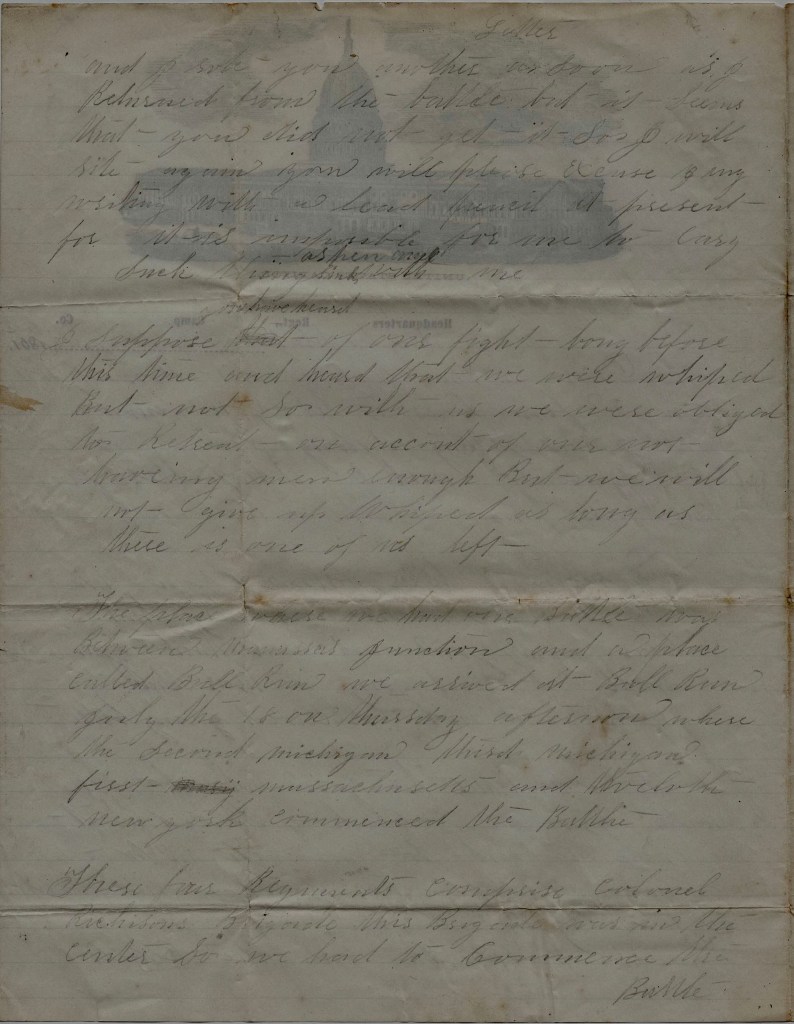 Letter
and I rote you another as soon as I
Returned from the battle but it seems
that you did not get it So I will
rite again you will please excuse my
writing with a lead pencil at present
for it is impossible for me to cary
Such things as pen and ink with me
you have heard
I suppose that of our fight long before
this time and heard that we were whiped
But not So with us we were obliged
to Retreat on account of our not
haveing men enough But we will
not give up whiped as long as
there is one of us left
The place where we had our Battle was
Between Manassas junction and a place
called Bull Run we arived at Bull Run
July the 18 on thursday afternoon where
the Second michigan third michigan
first massachusetts and twelvth
new york commenced the Battle
These four Regiments comprise Colonel
Richisons Brigade this Brigade was in the
center So we had to Commence the
Battle
Headquarters
Regt.,
Camp
Co.
1861